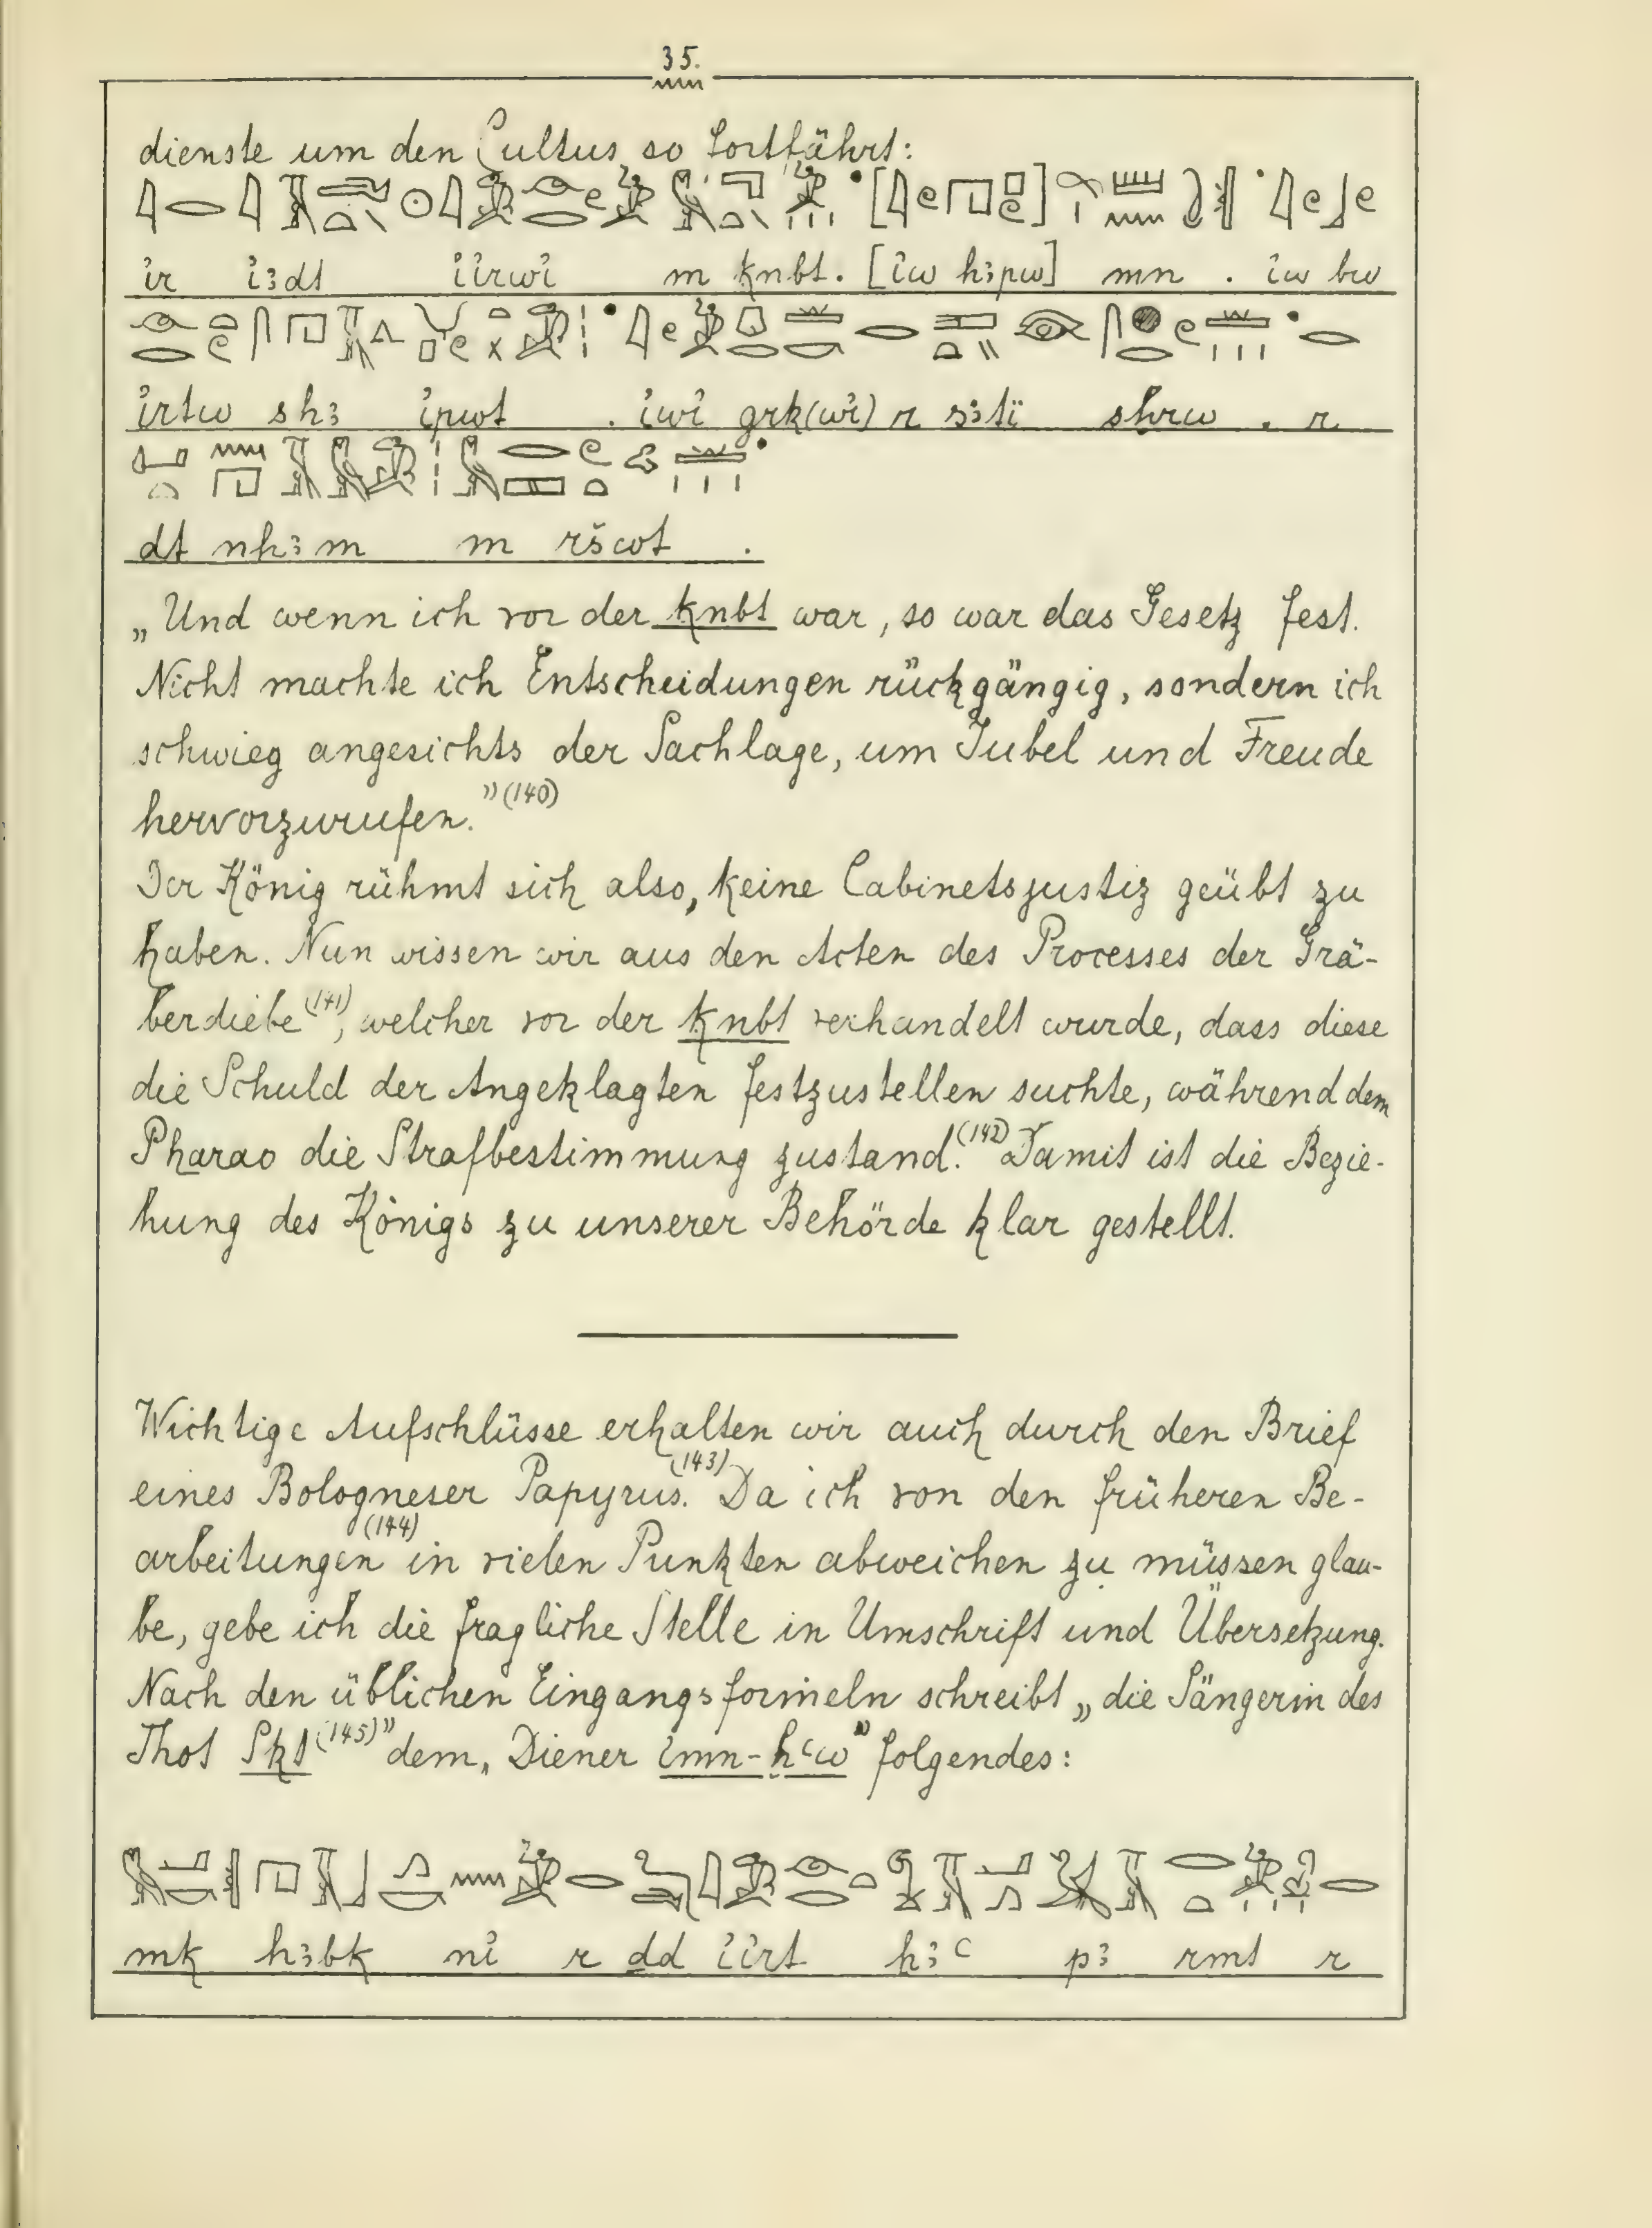 35.
dienste um den Cultus so fortfährt:
ir iꜣdt iirwi m knbt. [iw hꜣpw] mn . iw bw
irtw shꜣ ipwt . iwi grk(wi) r sꜣti sḫrw . r
dt nhꜣm m ršwt .
„Und wenn ich vor der knbt war, so war das Gesetz fest.
Nicht machte ich Entscheidungen rückgängig, sondern ich
schwieg angesichts der Sachlage, um Jubel und Freude
hervorzurufen."(140)
Der König rühmt sich also, keine Cabinetsjustiz geübt zu
haben. Nun wissen wir aus den Acten des Processes der Grä-
berdiebe(141), welcher vor der knbt verhandelt wurde, dass diese
die Schuld der Angeklagten festzustellen suchte, während dem
Pharao die Strafbestimmung zustand.(142) Damit ist die Bezie-
hung des Königs zu unserer Behörde klar gestellt.
Wichtige Aufschlüsse erhalten wir auch durch den Brief
eines Bologneser Papyrus.(143) Da ich von den früheren Be-
arbeitungen(144) in vielen Punkten abweichen zu müssen glau-
be, gebe ich die fragliche Stelle in Umschrift und Übersetzung.
Nach den üblichen Eingangsformeln schreibt „die Sängerin des
Thot Skt(145)" dem „Diener imn-ḫꜥw" folgendes:
mk hꜣbk ni r ḏd iirt ḫꜣꜥ pꜣ rmt r